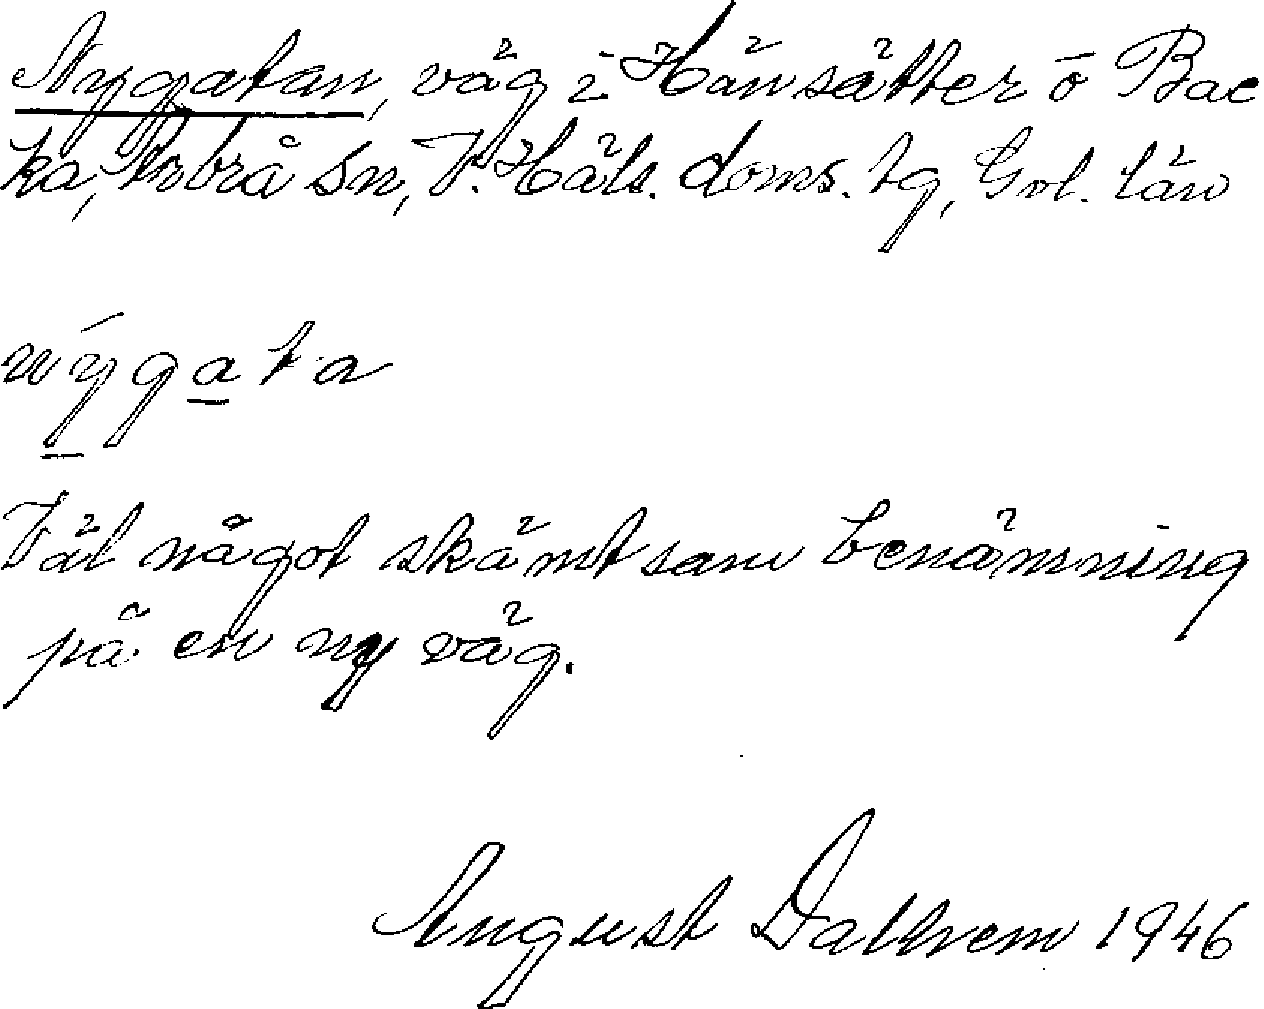 Nygatan, väg i Hänsätter o Bac
ka, Arbrå sn, V. Häls. doms. tg, Gvl. län
nýgata
Väl något skämtsam benämning
på en ny väg.
August Dalhem 1946